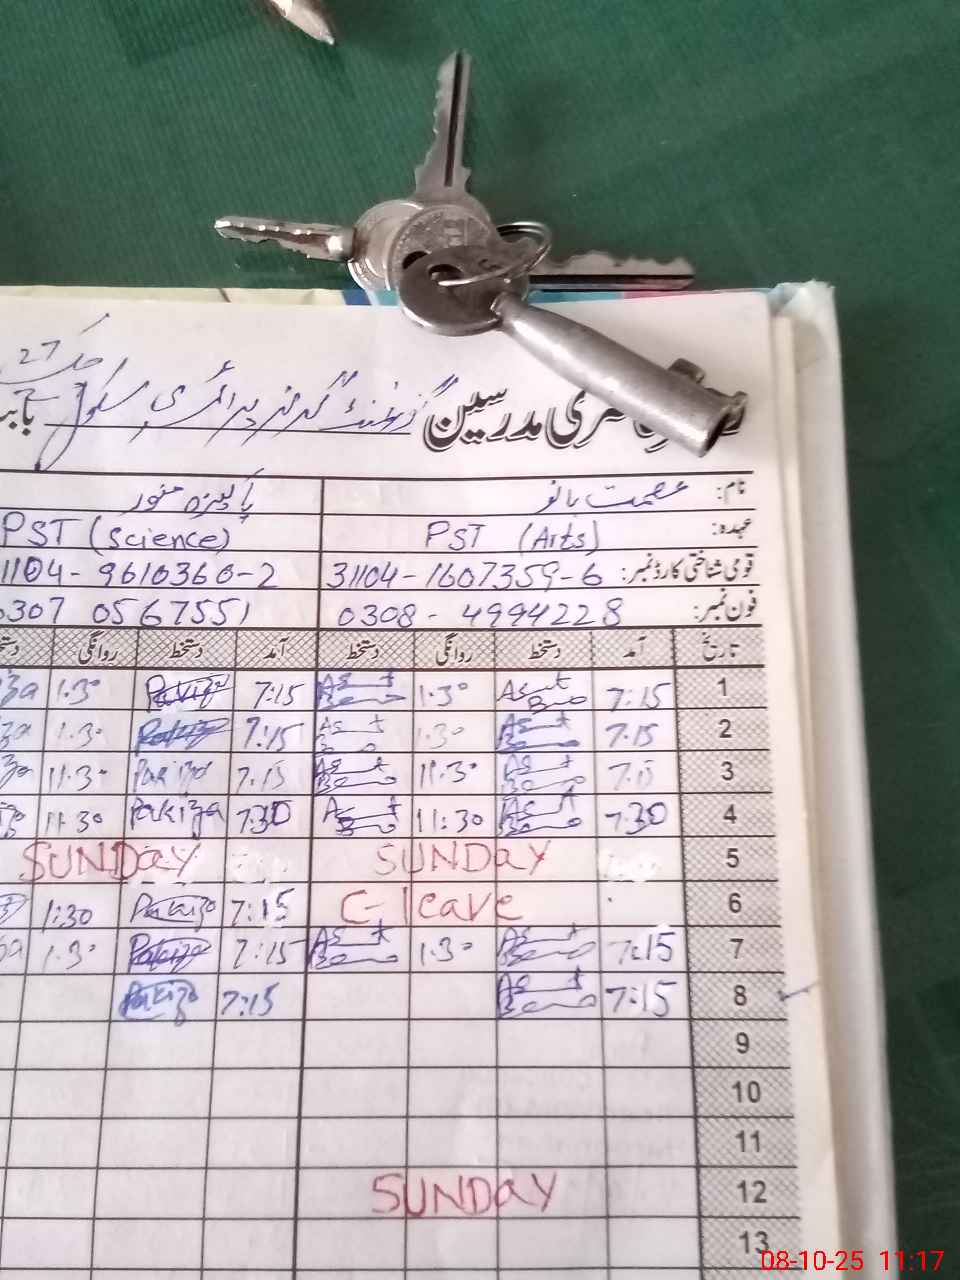 27 چک
رجسٹر حاضری مدرسین گورنمنٹ گرلز پرائمری سکول بابت
نام: عصمت بانو پاکیزہ منور
عہدہ: PST (Arts) PST (Science)
قومی شناختی کارڈ نمبر: 31104-1607359-6 1104-9610360-2
فون نمبر: 0308-4994228 0307 0567551
تاریخ آمد دستخط روانگی دستخط آمد دستخط روانگی
1 7:15 1:30 7:15 Pakiza 1:30
2 7:15 1:30 7:15 Pakiza 1:30
3 7:15 11:30 7:15 Pakiza 11:30
4 7:30 11:30 7:30 Pakiza 11:30
5 SUNDAY SUNDAY
6 C-leave 7:15 Pakiza 1:30
7 7:15 1:30 7:15 Pakiza 1:30
8 7:15 7:15 Pakiza
9
10
11
12 SUNDAY
13
08-10-25 11:17